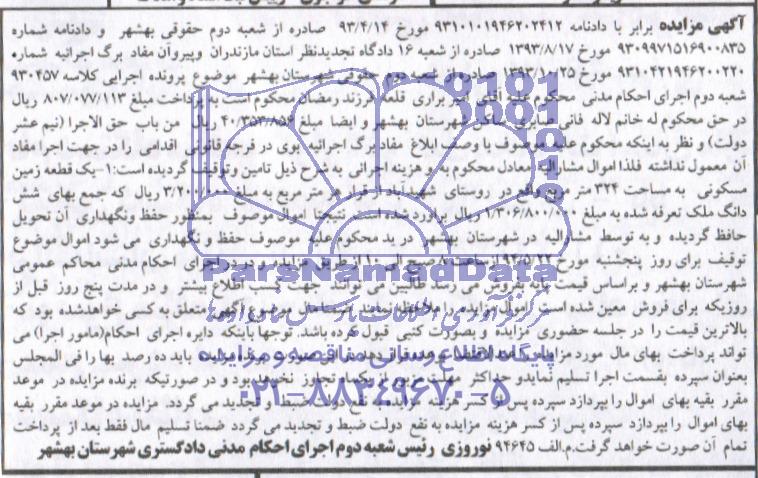 آگهی مزایده برابر با دادنامه ۹۳۱۰۱۰۱۹۴۶۲۰۲۴۱۲ مورخ ۹۳/۴/۱۴ صادره از شعبه دوم حقوقی بهشهر و دادنامه شماره
۹۳۰۹۹۷۱۵۱۶۹۰۰۸۳۵ مورخ ۱۳۹۳/۸/۱۷ صادره از شعبه ۱۶ دادگاه تجدیدنظر استان مازندران وپیروآن مفاد برگ اجرائیه شماره
۹۳۱۰۴۲۱۹۴۶۲۰۰۲۲۰ مورخ ۱۳۹۳/۱۰/۲۵ صادره از شعبه دوم حقوقی شهرستان بهشهر موضوع پرونده اجرایی کلاسه ۹۳۰۴۵۷
شعبه دوم اجرای احکام مدنی محکوم علیه آقای براری قلعه فرزند رمضان محکوم است به پرداخت مبلغ ۸۰۷/۰۷۷/۱۱۳ ریال
در حق محکوم له خانم لاله فانی ساکن شهرستان بهشهر و ایضا مبلغ ۴۰/۳۵۳/۸۵۶ ریال من باب حق الاجرا (نیم عشر
دولت) و نظر به اینکه محکوم علیه موصوف با وصف ابلاغ مفاد برگ اجرائیه بوی در فرجه قانونی اقدامی را در جهت اجرا مفاد
آن معمول نداشته فلذا اموال مشارالیه معادل محکوم به و هزینه اجرائی به شرح ذیل تامین وتوقیف گردیده است:۱-یک قطعه زمین
مسکونی به مساحت ۳۲۴ متر مربع واقع در روستای شهیدآباد از قرار هر متر مربع به مبلغ ۳/۲۰۰/۰۰۰ ریال که جمع بهای شش
دانگ ملک تعرفه شده به مبلغ ۱/۳۰۶/۸۰۰/۰۰۰ ریال برآورد شده است نتیجتا اموال موصوف بمنظور حفظ ونگهداری آن تحویل
حافظ گردیده و به توسط مشارالیه در شهرستان بهشهر در ید محکوم علیه موصوف حفظ و نگهداری می شود اموال موضوع
توقیف برای روز پنجشنبه مورخ ۹۴/۵/۲۲ از ساعت ۸ صبح الی ۱۰ از طریق مزایده و در دفتر اجرای احکام مدنی محاکم عمومی
شهرستان بهشهر و براساس قیمت پایه بفروش می رسد طالبین می توانند جهت کسب اطلاع بیشتر و در مدت پنج روز قبل از
روزیکه برای فروش معین شده است از اموال مزایده ملاحظه نمایند موضوع آگهی متعلق به کسی خواهدشده بود که
بالاترین قیمت را در جلسه حضوری مزایده و بصورت کتبی قبول کرده باشد. توجها باینکه دایره اجرای احکام(مامور اجرا) می
تواند پرداخت بهای مال مورد مزایده برنده مزایده باید ده رصد بها را فی المجلس
بعنوان سپرده بقسمت اجرا تسلیم نماید و حداکثر مهلت از یکماه تجاوز نخواهد بود و در صورتیکه برنده مزایده در موعد
مقرر بقیه بهای اموال را بپردازد سپرده پس از کسر هزینه مزایده به نفع دولت ضبط و تجدید می گردد. مزایده در موعد مقرر بقیه
بهای اموال را بپردازد سپرده پس از کسر هزینه مزایده به نفع دولت ضبط و تجدید می گردد ضمنا تسلیم مال فقط بعد از پرداخت
تمام آن صورت خواهد گرفت.م.الف ۹۴۶۴۵ نوروزی رئیس شعبه دوم اجرای احکام مدنی دادگستری شهرستان بهشهر
ParsNamadData
پایگاه اطلاع رسانی مناقصه و مزایده
۰۲۱-۸۸۳۴۹۶۷۰-۵